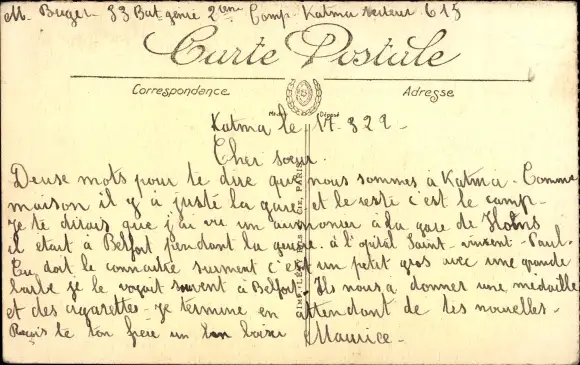 M. Buger 33 Bat génie 2ème Comp. Katma secteur 615
Carte Postale
Correspondance
Adresse
Katma le 17-3 22-
Cher sœur.
Deuse mots pour te dire que nous sommes à Katma. Comme
maison il y à juste la gare et le reste c'est le camp-
je te dirais que j'ai vu un aumonier à la gare de Homs
il etait à Belfort pendant la guerre à l'opital Saint-vincent-Paul.
Tu doit le connaitre surment c'est un petit gros avec une grande
barbe je le voyait souvent à Belfort. Ils nous à donner une médaille
et des cigarettes- je termine en attendant de tes nouvelles-
Reçois de ton frere un bon baiser
Maurice-